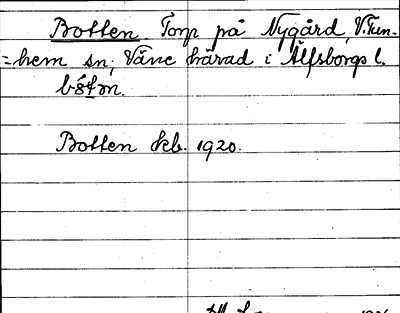 Botten. Torp på Nygård, V. Tun-
=hem sn; Väne härad i Älfsborgs l.
Botten kb. 1920.